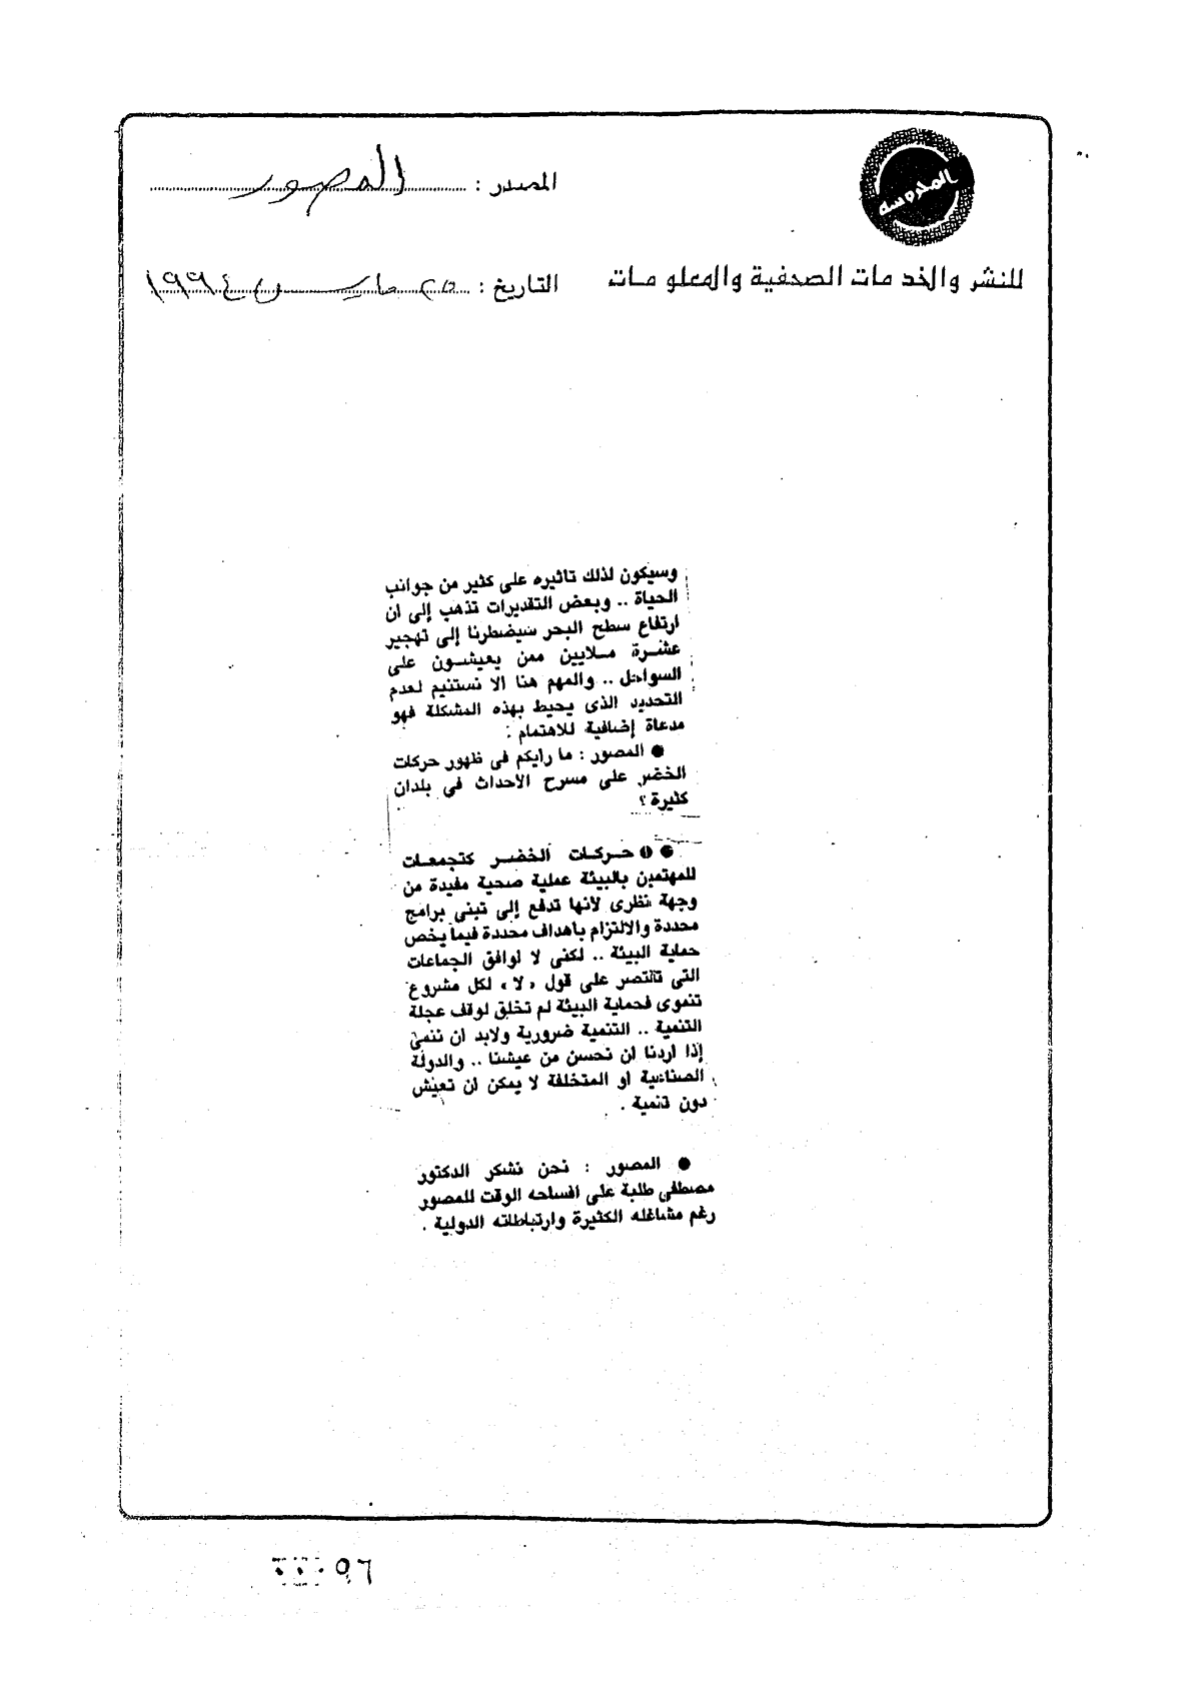 المحروسه
المصدر : المصور
للنشر والخدمات الصحفية والمعلومات
التاريخ : ٢٥ مايس ١٩٩٤
وسيكون لذلك تاثيره على كثير من جوانب
الحياة .. وبعض التقديرات تذهب إلى ان
ارتفاع سطح البحر سيضطرنا إلى تهجير
عشرة ملايين ممن يعيشون على
السواحل .. والمهم هنا الا نستنيم لعدم
التحديد الذى يحيط بهذه المشكلة فهو
مدعاة إضافية للاهتمام :
● المصور : ما رايكم فى ظهور حركات
الخضر على مسرح الاحداث فى بلدان
كثيرة ؟
●● حركات الخضر كتجمعات
للمهتمين بالبيئة عملية صحية مفيدة من
وجهة نظرى لانها تدفع إلى تبنى برامج
محددة والالتزام باهداف محددة فيما يخص
حماية البيئة .. لكنى لا اوافق الجماعات
التى تقتصر على قول « لا » لكل مشروع
تنموى فحماية البيئة لم تخلق لوقف عجلة
التنمية .. التنمية ضرورية ولابد ان ننمى
إذا اردنا ان نحسن من عيشنا .. والدولة
الصناعية او المتخلفة لا يمكن ان تعيش
دون تنمية .
● المصور : نحن نشكر الدكتور
مصطفى طلبة على افساحه الوقت للمصور
رغم مشاغله الكثيرة وارتباطاته الدولية .